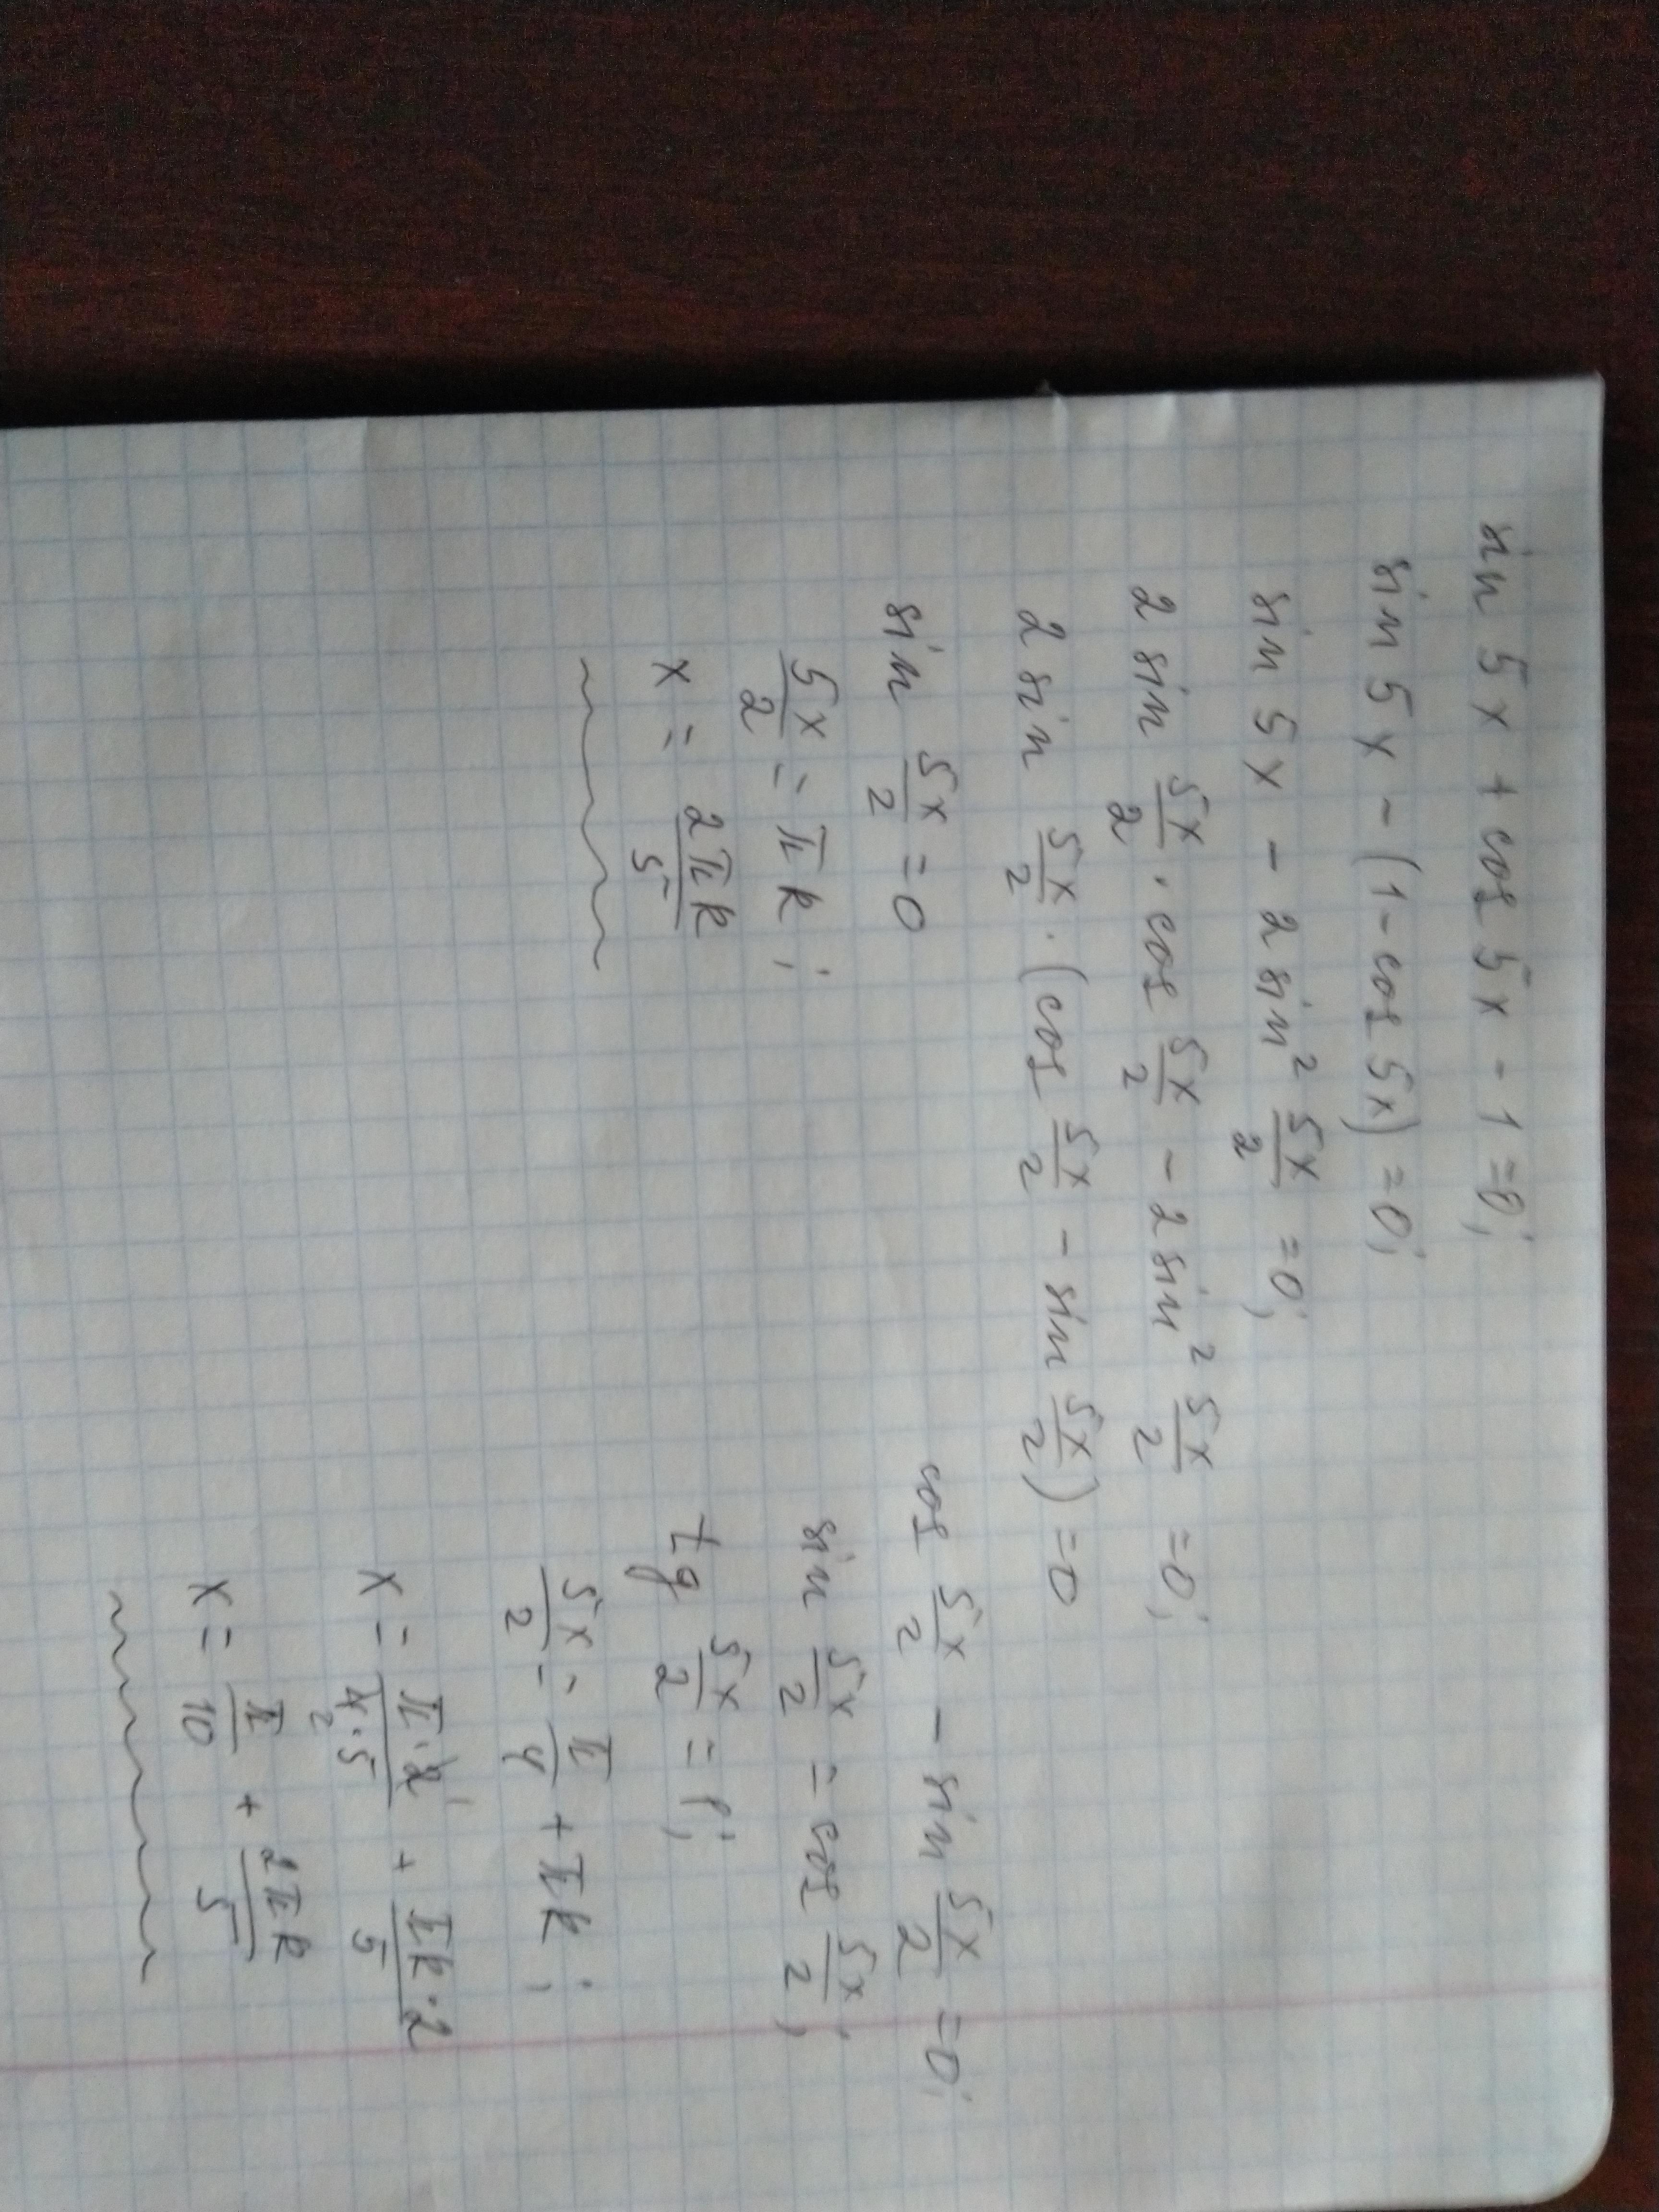 sin 5x + cos 5x - 1 = 0;
sin 5x - (1 - cos 5x) = 0;
sin 5x - 2 sin² 5x/2 = 0;
2 sin 5x/2 · cos 5x/2 - 2 sin² 5x/2 = 0;
2 sin 5x/2 · (cos 5x/2 - sin 5x/2) = 0
sin 5x/2 = 0
5x/2 = πk;
x = 2πk/5
cos 5x/2 - sin 5x/2 = 0;
sin 5x/2 = cos 5x/2;
tg 5x/2 = 1;
5x/2 = π/4 + πk;
x = π·2/4·5 + πk·2/5
x = π/10 + 2πk/5